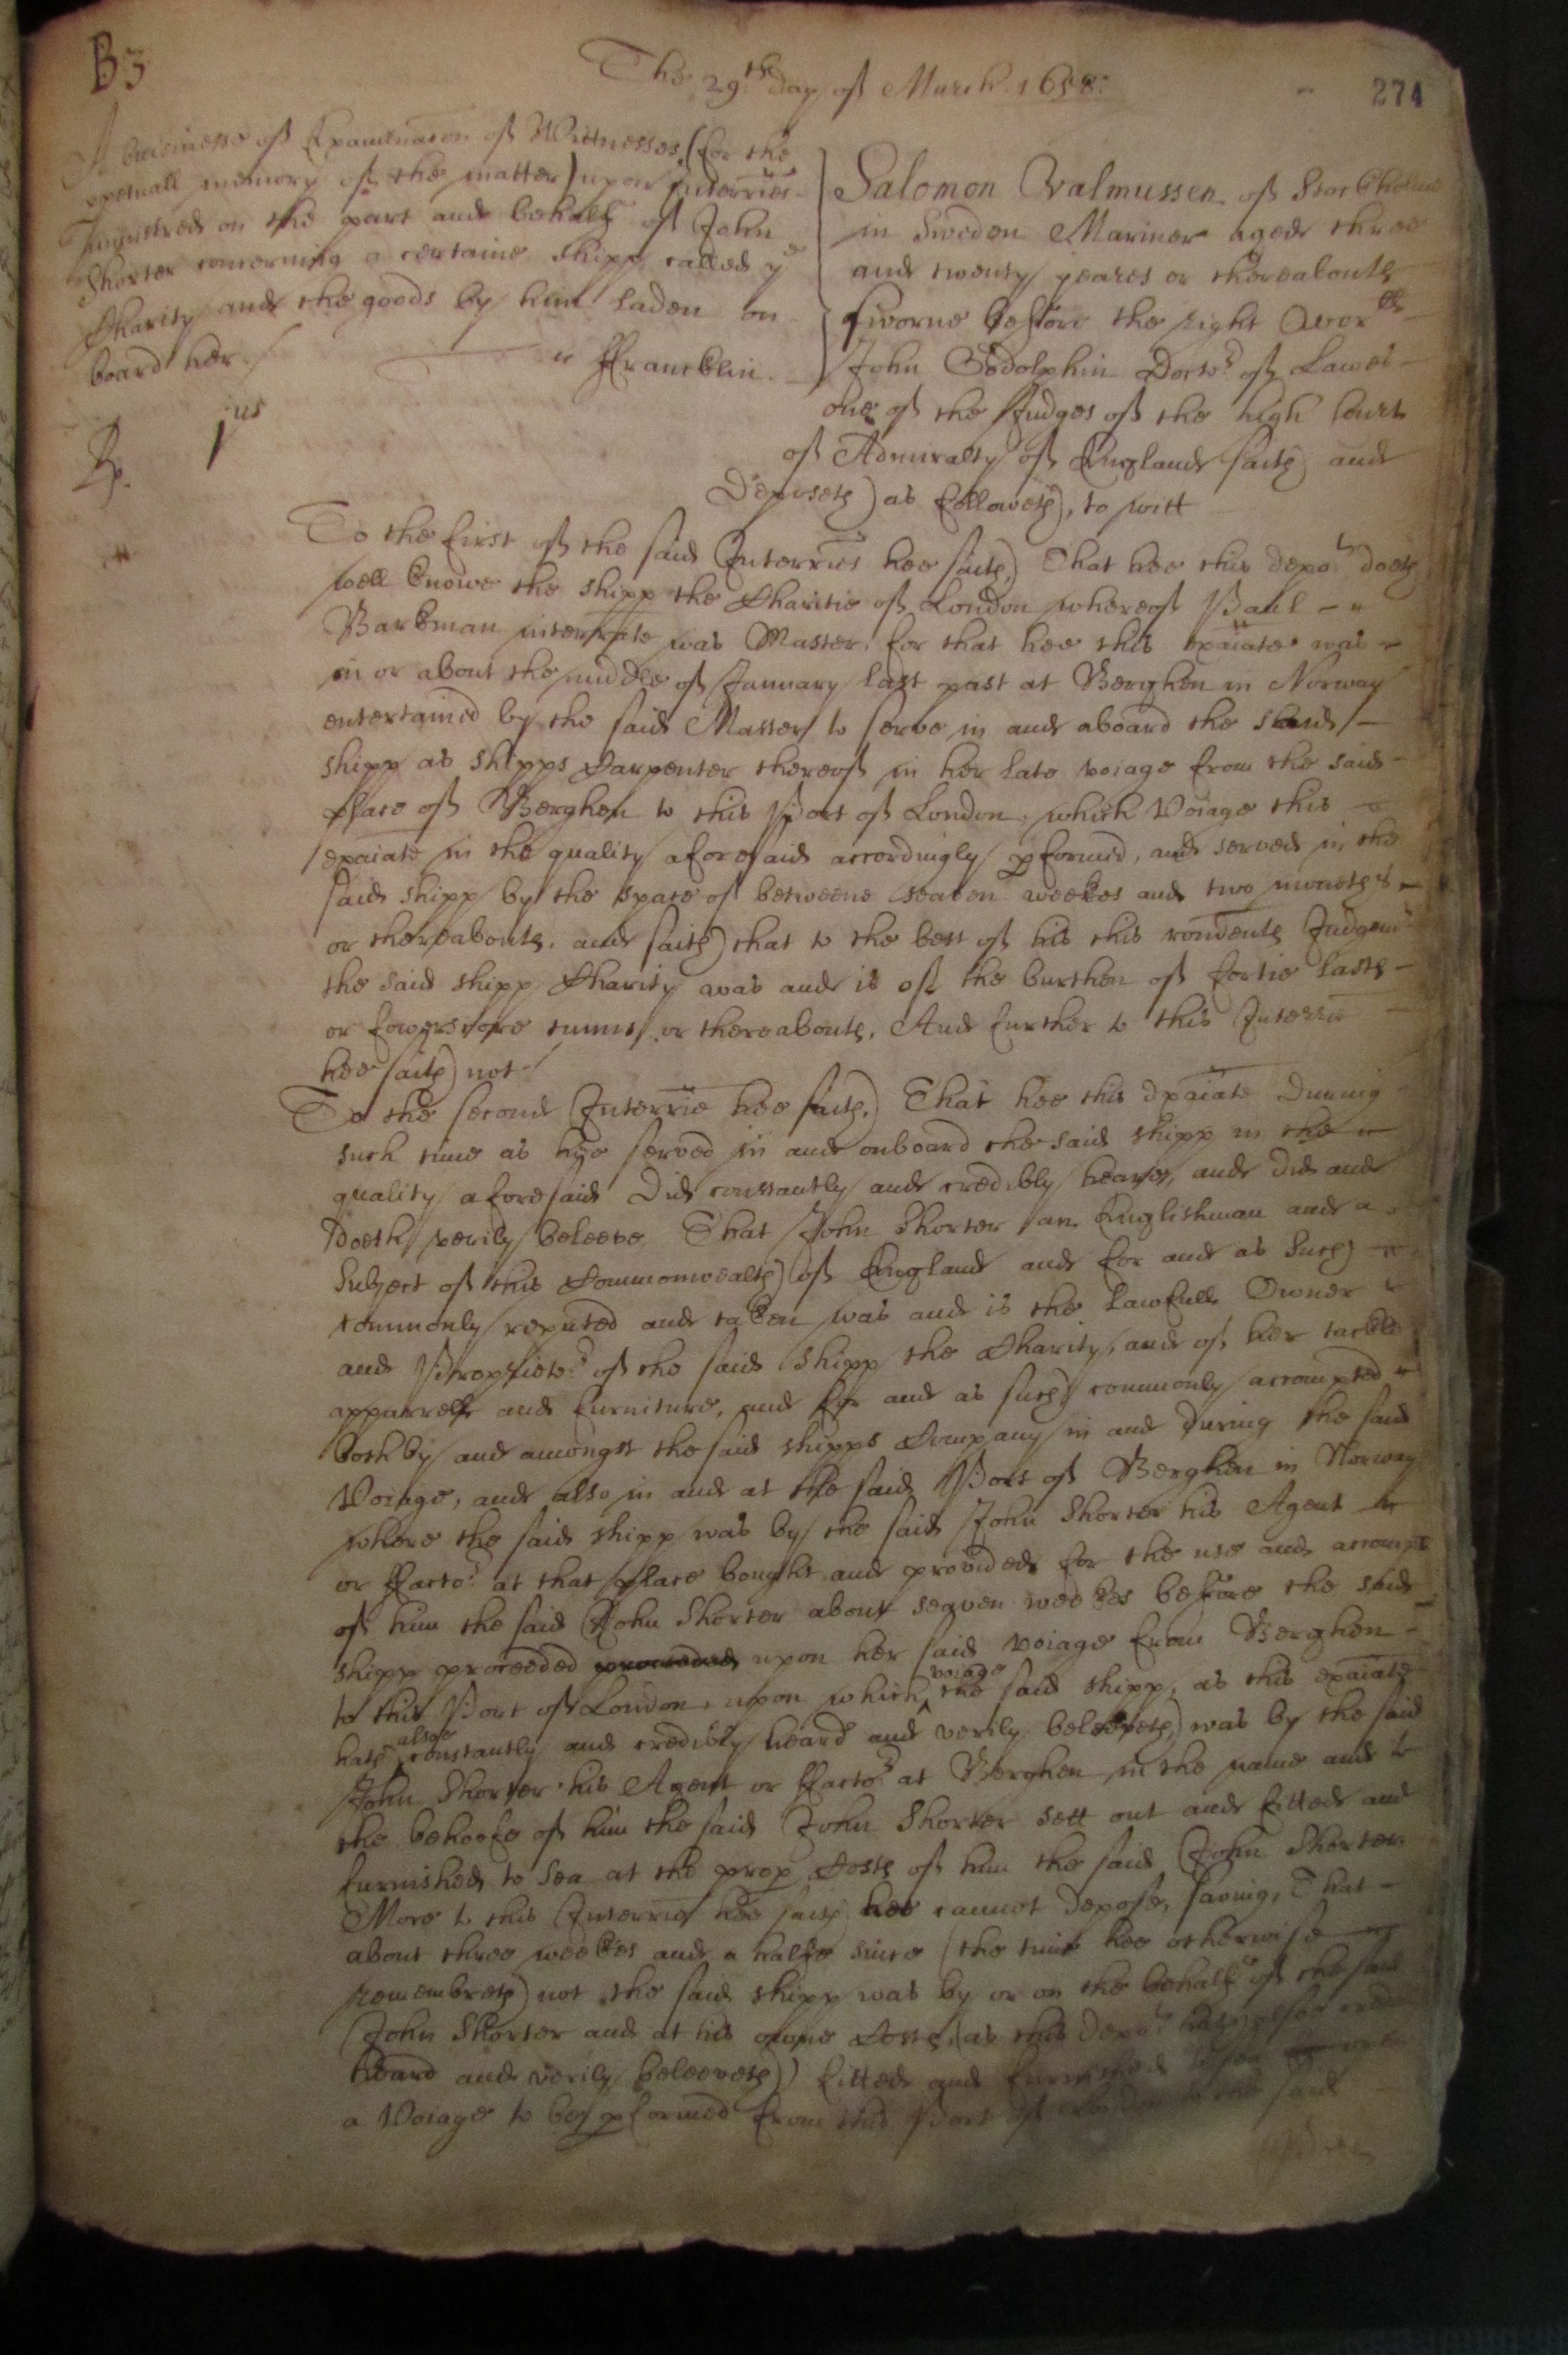 B3
The 29.th day of March. 1658.
274
A businesse of Examinacon of Wittnesses, (for the
ppetuall memory of the matter) upon Interries
ministred on the part and behalf of John
Shorter concerning a certaine Shipp called ye
Charity and the goods by him laden on
board her.
Francklin.
Rp. jus
Salomon Valmussen of Stockholme
in Sweden Mariner aged three
and twenty yeares or thereabouts
sworne before the right Worll
John Godolphin Doctor of Lawes
one of the Judges of the high Court
of Admiralty of England saith and
Deposeth as followeth, to witt
To the first of the said Interries hee saith, That hee this depot doeth
well knowe the shipp the Charitie of London whereof Paul
Barkman interrate was Master, for that hee this exaiate was
in or about the middle of January last past at Berghen in Norway
entertained by the said Master to serve in and aboard the said
shipp as shipps Carpenter thereof in her late voiage from the said
place of Berghen to this Port of London, which Voiage this
exaiate in the quality aforesaid accordingly pformed, and served in the
said shipp by the space of betweene seaven weekes and two moneths
or thereabouts, and saith that to the best of his this rondents Judgemt
the said shipp Charity was and is of the burthen of fortie lasts
or fowerscore tunns, or thereabouts, And further to this Interrie
hee saith not
To the second Interrie hee saith, That hee this exaiate During
such time as hee served in and onboard the said shipp in the
quality aforesaid Did constantly and credibly heare, and did and
doeth verily beleeve That John Shorter an Englishman and a
Subject of this Commonwealth of England and for and as such
commonly reputed and taken was and is the lawfull Owner
and Proprietor of the said Shipp the Charity, and of her tackle
apparrell and furniture, and for and as such commonly accompted
both by and amongst the said shipps Company in and during the said
Voiage, and also in and at the said Port of Berghen in Norway
where the said shipp was by the said John Shorter his Agent
or Factor at that place bought and provided for the use and accompt
of him the said John Shorter about seaven weekes before the said
shipp proceeded proceeded upon her said voiage from Berghen
to this Port of London, upon which voiage the said shipp, as this exaiate
hath also constantly and credibly heard and verily beleeveth, was by the said
John Shorter his Agent or Factor at Berghen in the name and to
the behoofe of him the said John Shorter sett out and fitted and
furnished to Sea at the prop Costs of him the said John Shorter
More to this Interrie hee saith hee cannot depose, saving, That
about three weekes and a halfe since (the time hee otherwise
remembreth not the said shipp was by or on the behalf of the said
John Shorter and at his owne Costs, (as this depot hath also
heard and verily beleeveth) fitted and furnished to sea
a Voiage to be pformed from this Port of London to the said